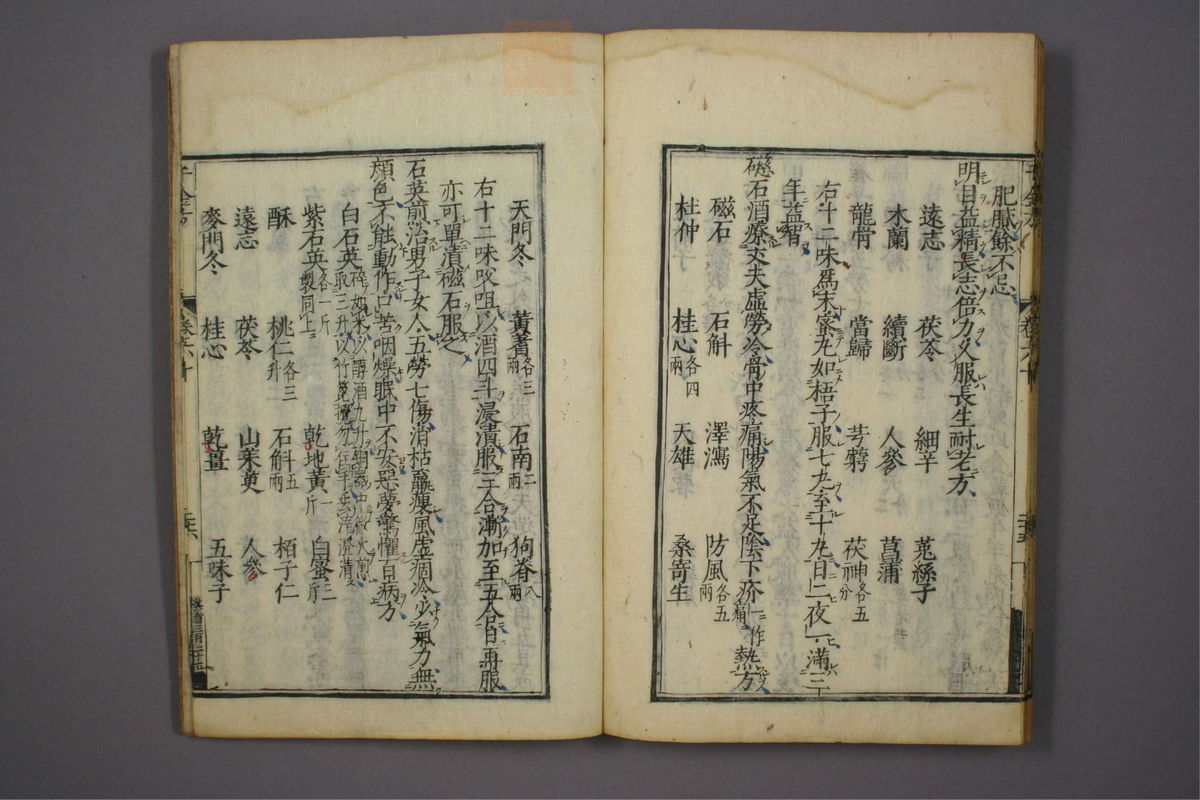 肥膩餘不忌
明目益精長志倍力久服長生耐老方
遠志 茯苓 細辛 菟絲子
木蘭 續斷 人參 菖蒲
龍骨 當歸 芎藭 茯神各五分
右十二味爲末蜜丸如梧子服七丸至十丸日二夜一滿三
年益智
磁石酒療丈夫虛勞冷骨中疼痛陽氣不足陰下疹一作痛熱方
磁石 石斛 澤瀉 防風各五兩
杜仲 桂心各四兩 天雄 桑寄生
天門冬 黃蓍各三兩 石南二兩 狗脊八兩
右十二味㕮咀以酒四斗浸漬服三合漸加至五合日再服
亦可單漬磁石服之
石英煎治男子女人五勞七傷消枯羸瘦風虛痼冷少氣力無
顏色不能動作口苦咽燥眠中不安惡夢驚懼百病方
白石英碎如米以醇酒九升銅器中微火煎取三升以竹篦攪勿住手去滓澄清
紫石英各一斤製同上 乾地黃一斤 白蜜三斤
酥 桃仁各三升 石斛五兩 栢子仁
遠志 茯苓 山茱萸 人參
麥門冬 桂心 乾薑 五味子